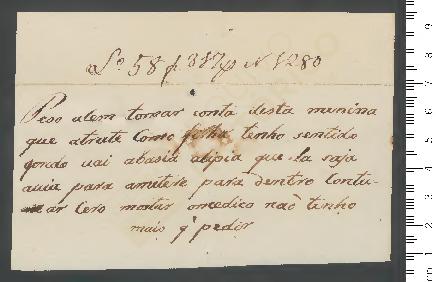 Lº 58 f 317 N 1280
Peso alem tomar conta desta menina
que atrate Como filha tinho sentido
qondo vai abasia alipia que la raja
auia para ametere para dentro Contu-
ar Cero mortir omedico naõ tinho
mais q pedir